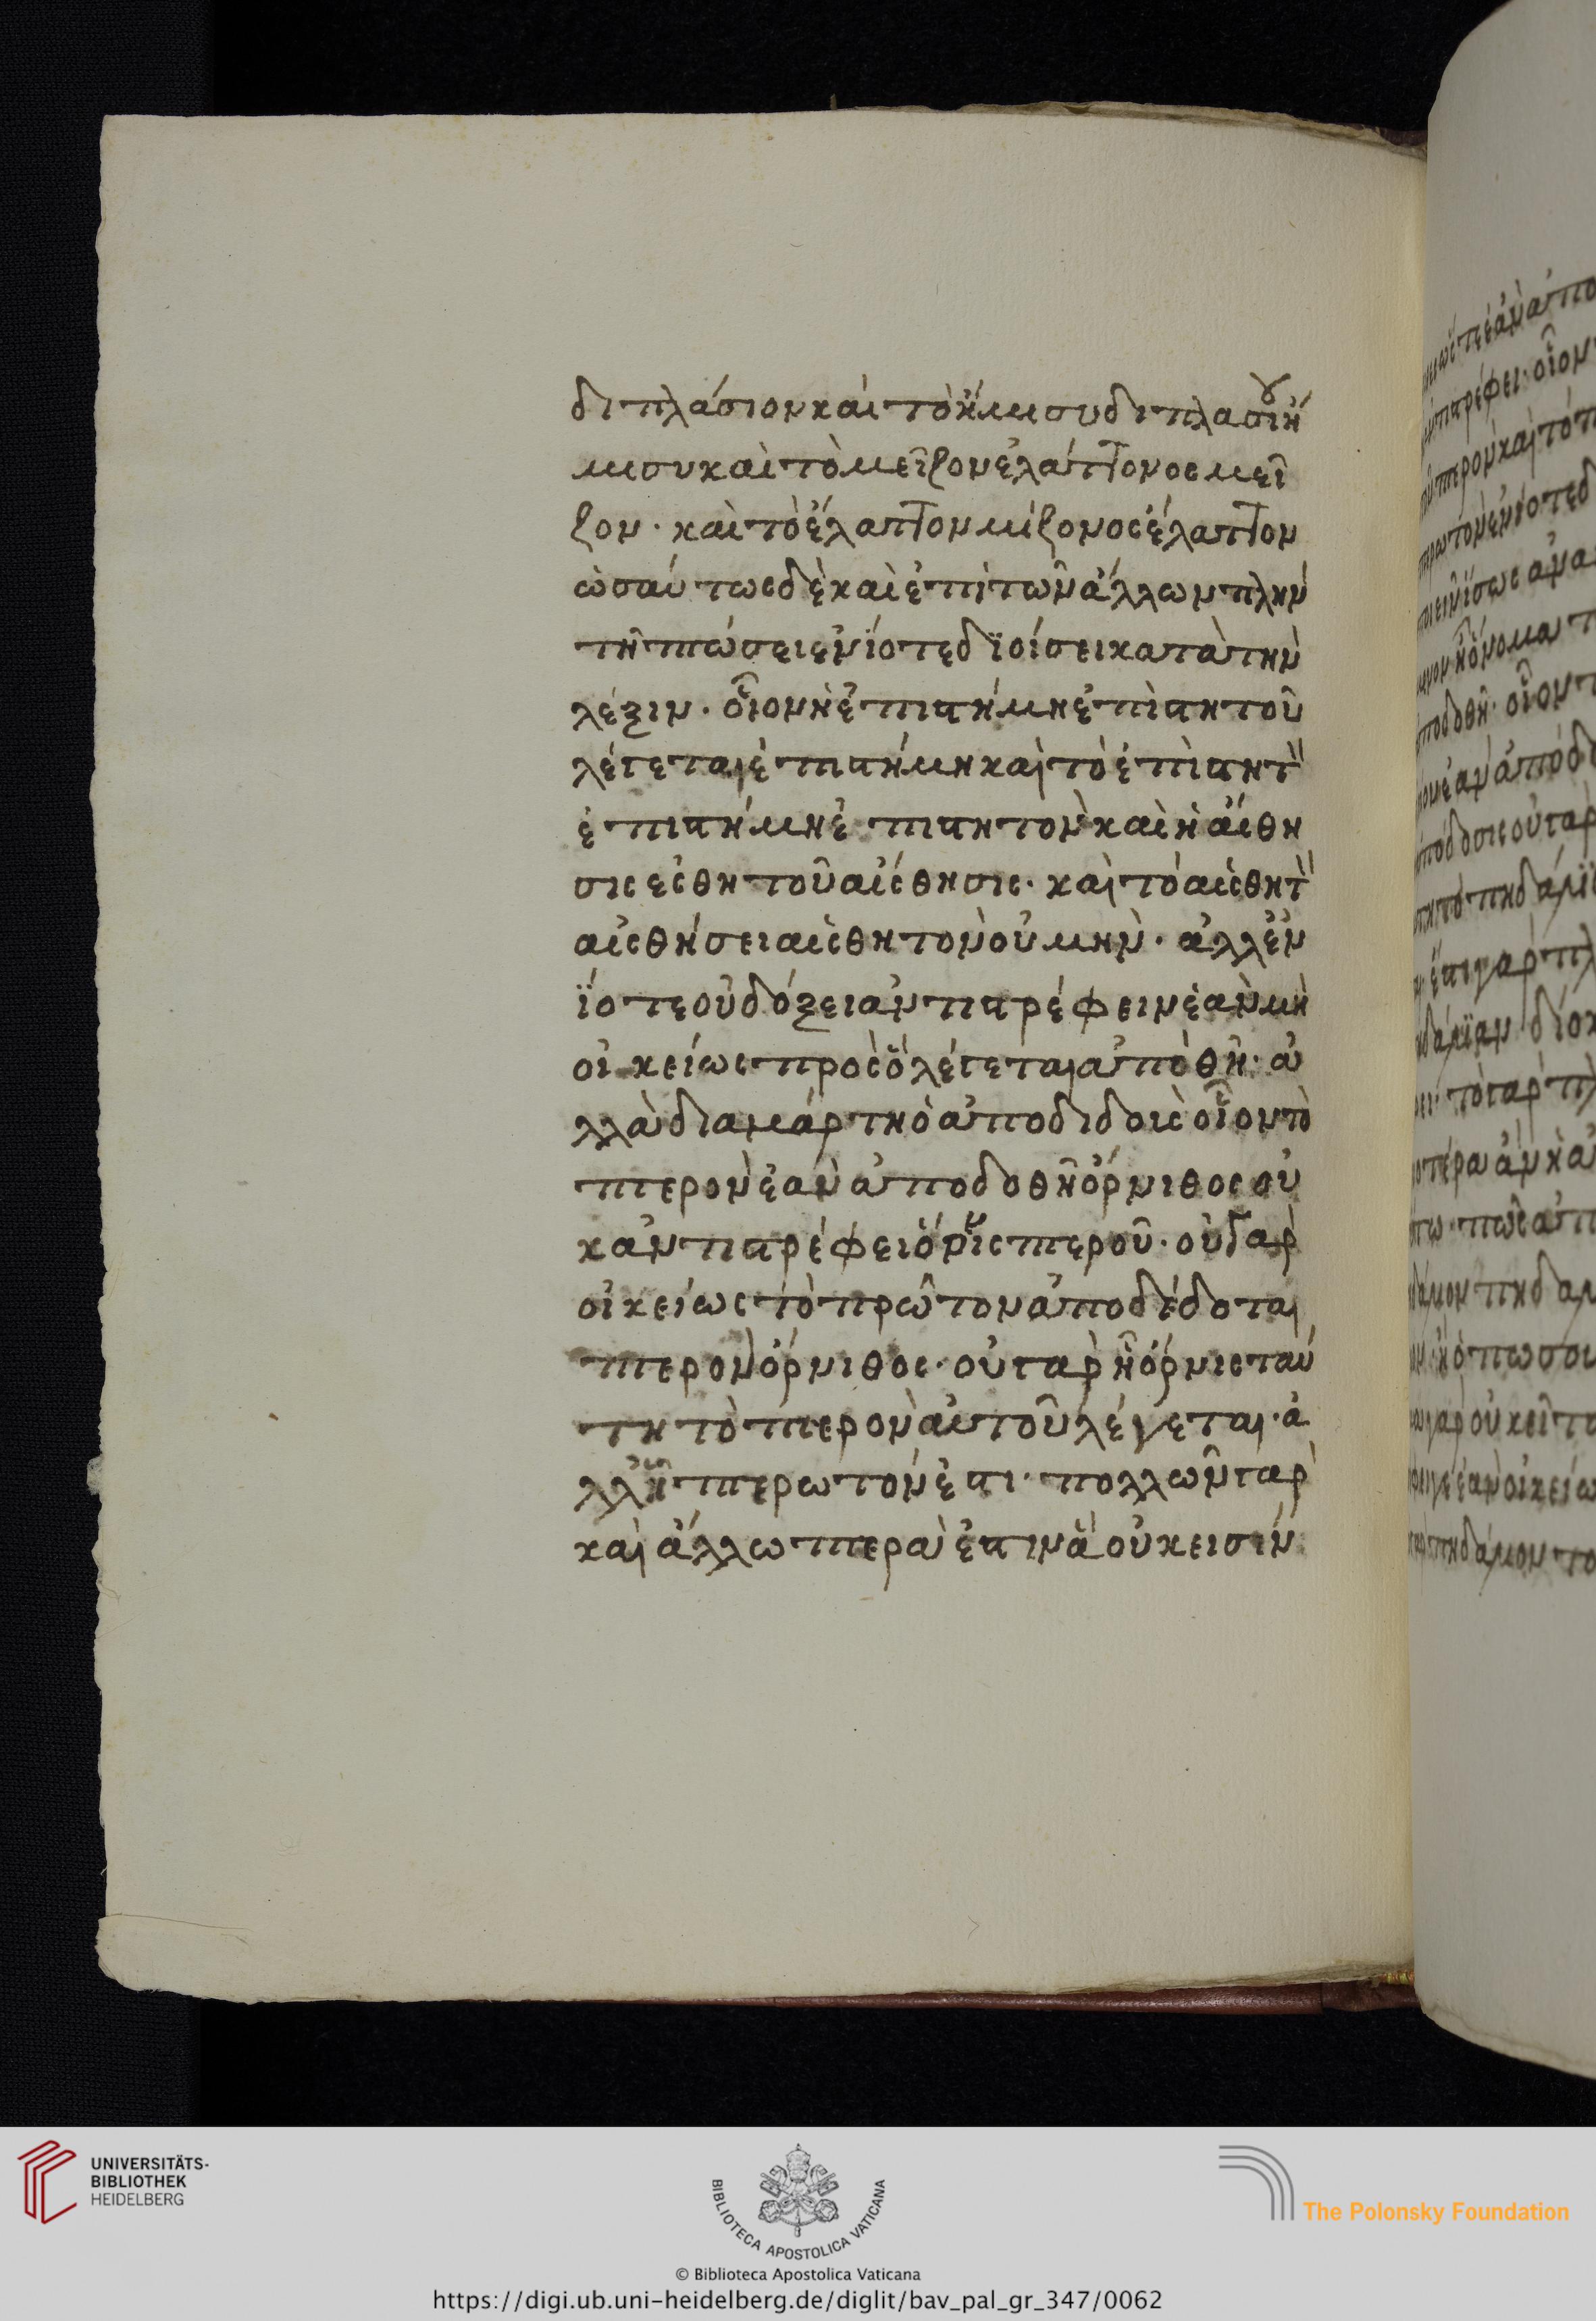 διπλάσιον καὶ τὸ ἥμισυ διπλασίου ἥ
μισυ καὶ τὸ μεῖζον ἐλάττονος μεῖ
ζον · καὶ τὸ ἔλαττον μίζονος ἔλαττον
ὡσαύτως δὲ καὶ ἐπὶ τῶν ἄλλων πλὴν
τῆ πτώσει ἐνΐοτε δϊοίσει κατὰ τὴν
λέξιν · οἷον ἡ ἐπιστήμη ἐπιστητοῦ
λέγεται ἐπιστήμη καὶ τὸ ἐπιστητὸν
ἐπιστήμη ἐπιστητὸν καὶ ἡ αἴσθη
σις εσθητοῦ αἴσθησις · καὶ τὸ αἰσθητὸν
αἰσθήσει αἰσθητὸν οὐ μὴν · ἀλλ' ἐν
ΐοτε οὐ δόξει ἀντιστρέφειν ἐὰν μὴ
οἰκείως πρὸς ὃ λέγεται ἀποθῆ · ἀ
λλὰ διαμάρτη ὁ ἀποδιδοὺς οἷον τὸ
πτερὸν ἐὰν ἀποδοθῆ ὄρνιθος οὐ
κ ἀντιστρέφει ὄρνις πτεροῦ · οὐ γὰρ
οἰκείως τὸ πρῶτον ἀποδέδοται
πτερὸν ὄρνιθος · οὐ γὰρ ἧ ὄρνις ταύ
τη τὸ πτερὸν αὐτοῦ λέγεται · ἀ
λλ' ἧ πτερωτόν ἐστι · πολλῶν γὰρ
καὶ ἄλλω πτερὰ ἐστιν ἃ οὐκ εισίν
UNIVERSITÄTS-
BIBLIOTHEK
HEIDELBERG
BIBLIOTECA APOSTOLICA VATICANA
The Polonsky Foundation
© Biblioteca Apostolica Vaticana
https://digi.ub.uni-heidelberg.de/diglit/bav_pal_gr_347/0062